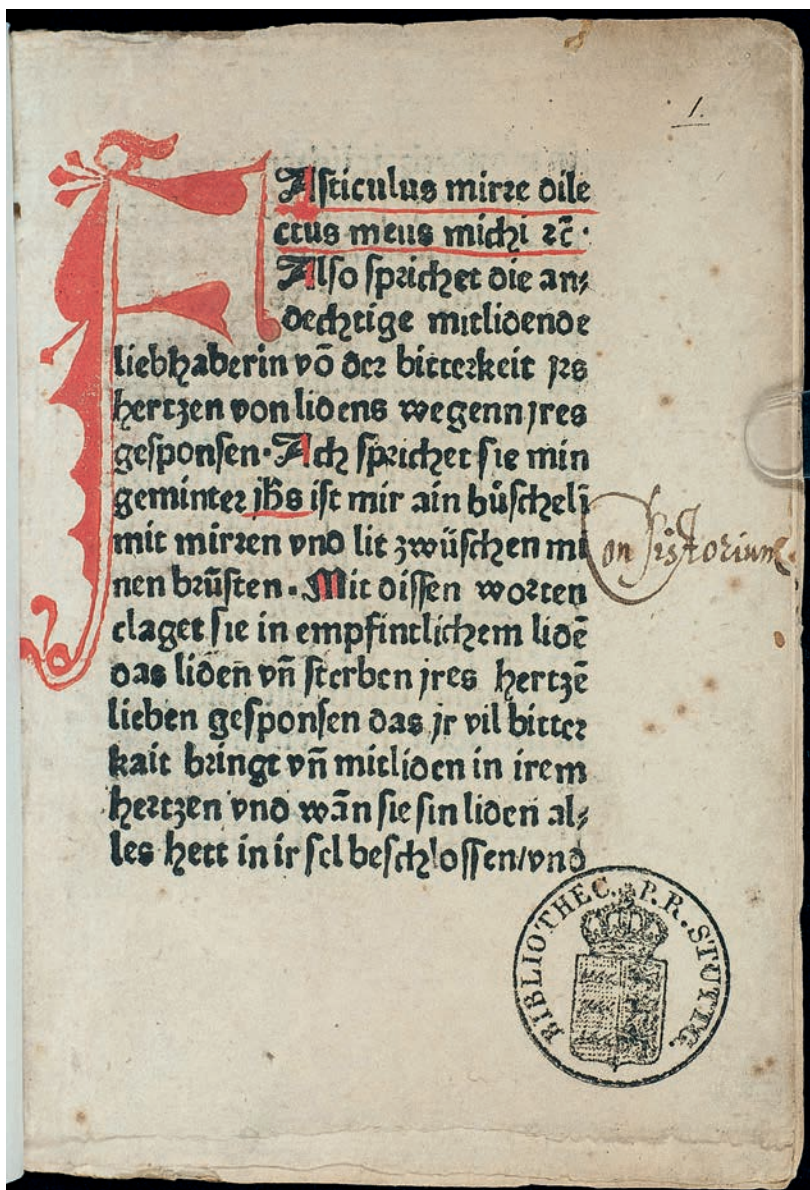 1.
FAſticulus mirre dile
ctus meus michi ⁊c̄·
Alſo ſprichet die an⸗
dechtige mitlidende
liebhaberin vō der bitterkeit jrs
hertzen von lidens wegenn jres
geſponſen·Ach ſprichet ſie min
geminter jh̄s iſt mir ain bůſchelī
mit mirren vnd lit zwüſchen mi
nen brüſten·Mit diſſen worten
claget ſie in empfintlichem lidē
das liden vn̄ ſterben jres hertzē
lieben geſponſen das jr vil bitter
kait bringt vn̄ mitliden in irem
hertzen vnd wān ſie ſin liden al⸗
les hett in ir ſel beſchloſſen/vnd
Conſiſtorium
BIBLIOTHEC. P. R. STUTTG.